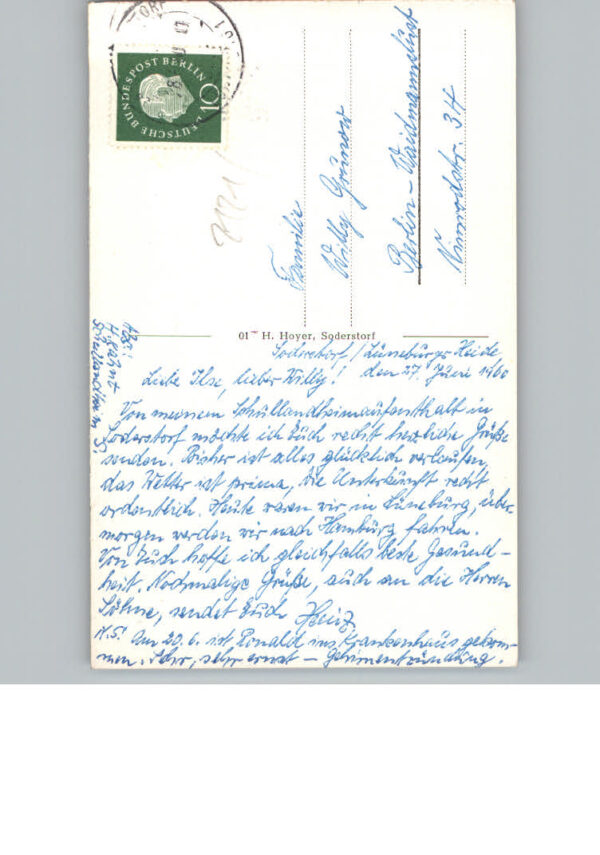 DEUTSCHE BUNDESPOST BERLIN
10
Familie
Willy Grunow
Berlin-Waidmannslust
Nimrodstr. 34
01 H. Hoyer, Soderstorf
Abs.:
Soderstorf / Lüneburger Heide
den 27. Juni 1960
Liebe Ilse, lieber Willy!
Von meinem Schullandheimaufenthalt in
Soderstorf möchte ich Euch recht herzliche Grüße
senden. Bisher ist alles glücklich verlaufen,
das Wetter ist prima, die Unterkunft recht
ordentlich. Heute waren wir in Lüneburg, über-
morgen werden wir nach Hamburg fahren.
Von Euch hoffe ich gleichfalls beste Gesund-
heit. Nochmalige Grüße, auch an die Herren
Söhne, sendet Euch Heinz
N.S! Am 20.6. ist Ronald ins Krankenhaus gekom-
men. Sehr, sehr ernst - Gehirnentzündung.